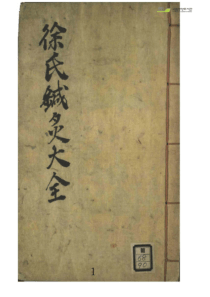 徐氏鍼灸大全
1